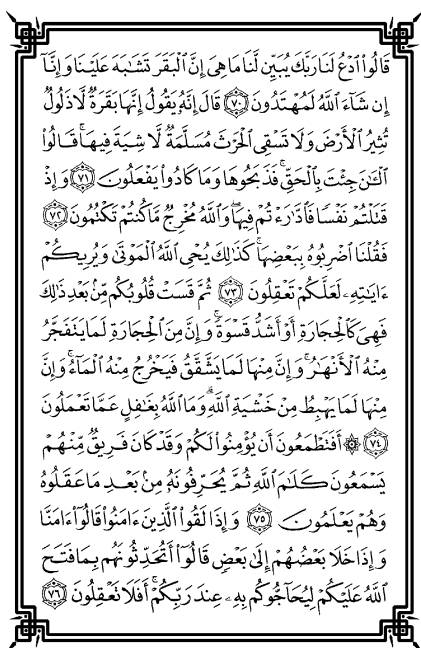 قَالُوا۟ ٱدْعُ لَنَا رَبَّكَ يُبَيِّن لَّنَا مَا هِىَ إِنَّ ٱلْبَقَرَ تَشَٰبَهَ عَلَيْنَا وَإِنَّآ
إِن شَآءَ ٱللَّهُ لَمُهْتَدُونَ ٧٠ قَالَ إِنَّهُۥ يَقُولُ إِنَّهَا بَقَرَةٌ لَّا ذَلُولٌ
تُثِيرُ ٱلْأَرْضَ وَلَا تَسْقِى ٱلْحَرْثَ مُسَلَّمَةٌ لَّا شِيَةَ فِيهَا ۚ قَالُوا۟
ٱلْـَٰٔنَ جِئْتَ بِٱلْحَقِّ ۚ فَذَبَحُوهَا وَمَا كَادُوا۟ يَفْعَلُونَ ٧١ وَإِذْ
قَتَلْتُمْ نَفْسًا فَٱدَّٰرَْٰٔتُمْ فِيهَا ۖ وَٱللَّهُ مُخْرِجٌ مَّا كُنتُمْ تَكْتُمُونَ ٧٢
فَقُلْنَا ٱضْرِبُوهُ بِبَعْضِهَا ۚ كَذَٰلِكَ يُحْىِ ٱللَّهُ ٱلْمَوْتَىٰ وَيُرِيكُمْ
ءَايَٰتِهِۦ لَعَلَّكُمْ تَعْقِلُونَ ٧٣ ثُمَّ قَسَتْ قُلُوبُكُم مِّنۢ بَعْدِ ذَٰلِكَ
فَهِىَ كَٱلْحِجَارَةِ أَوْ أَشَدُّ قَسْوَةً ۚ وَإِنَّ مِنَ ٱلْحِجَارَةِ لَمَا يَتَفَجَّرُ
مِنْهُ ٱلْأَنْهَٰرُ ۚ وَإِنَّ مِنْهَا لَمَا يَشَّقَّقُ فَيَخْرُجُ مِنْهُ ٱلْمَآءُ ۚ وَإِنَّ
مِنْهَا لَمَا يَهْبِطُ مِنْ خَشْيَةِ ٱللَّهِ ۗ وَمَا ٱللَّهُ بِغَٰفِلٍ عَمَّا تَعْمَلُونَ
٧٤ ۞ أَفَتَطْمَعُونَ أَن يُؤْمِنُوا۟ لَكُمْ وَقَدْ كَانَ فَرِيقٌ مِّنْهُمْ
يَسْمَعُونَ كَلَٰمَ ٱللَّهِ ثُمَّ يُحَرِّفُونَهُۥ مِنۢ بَعْدِ مَا عَقَلُوهُ
وَهُمْ يَعْلَمُونَ ٧٥ وَإِذَا لَقُوا۟ ٱلَّذِينَ ءَامَنُوا۟ قَالُوٓا۟ ءَامَنَّا
وَإِذَا خَلَا بَعْضُهُمْ إِلَىٰ بَعْضٍ قَالُوٓا۟ أَتُحَدِّثُونَهُم بِمَا فَتَحَ
ٱللَّهُ عَلَيْكُمْ لِيُحَآجُّوكُم بِهِۦ عِندَ رَبِّكُمْ ۚ أَفَلَا تَعْقِلُونَ ٧٦